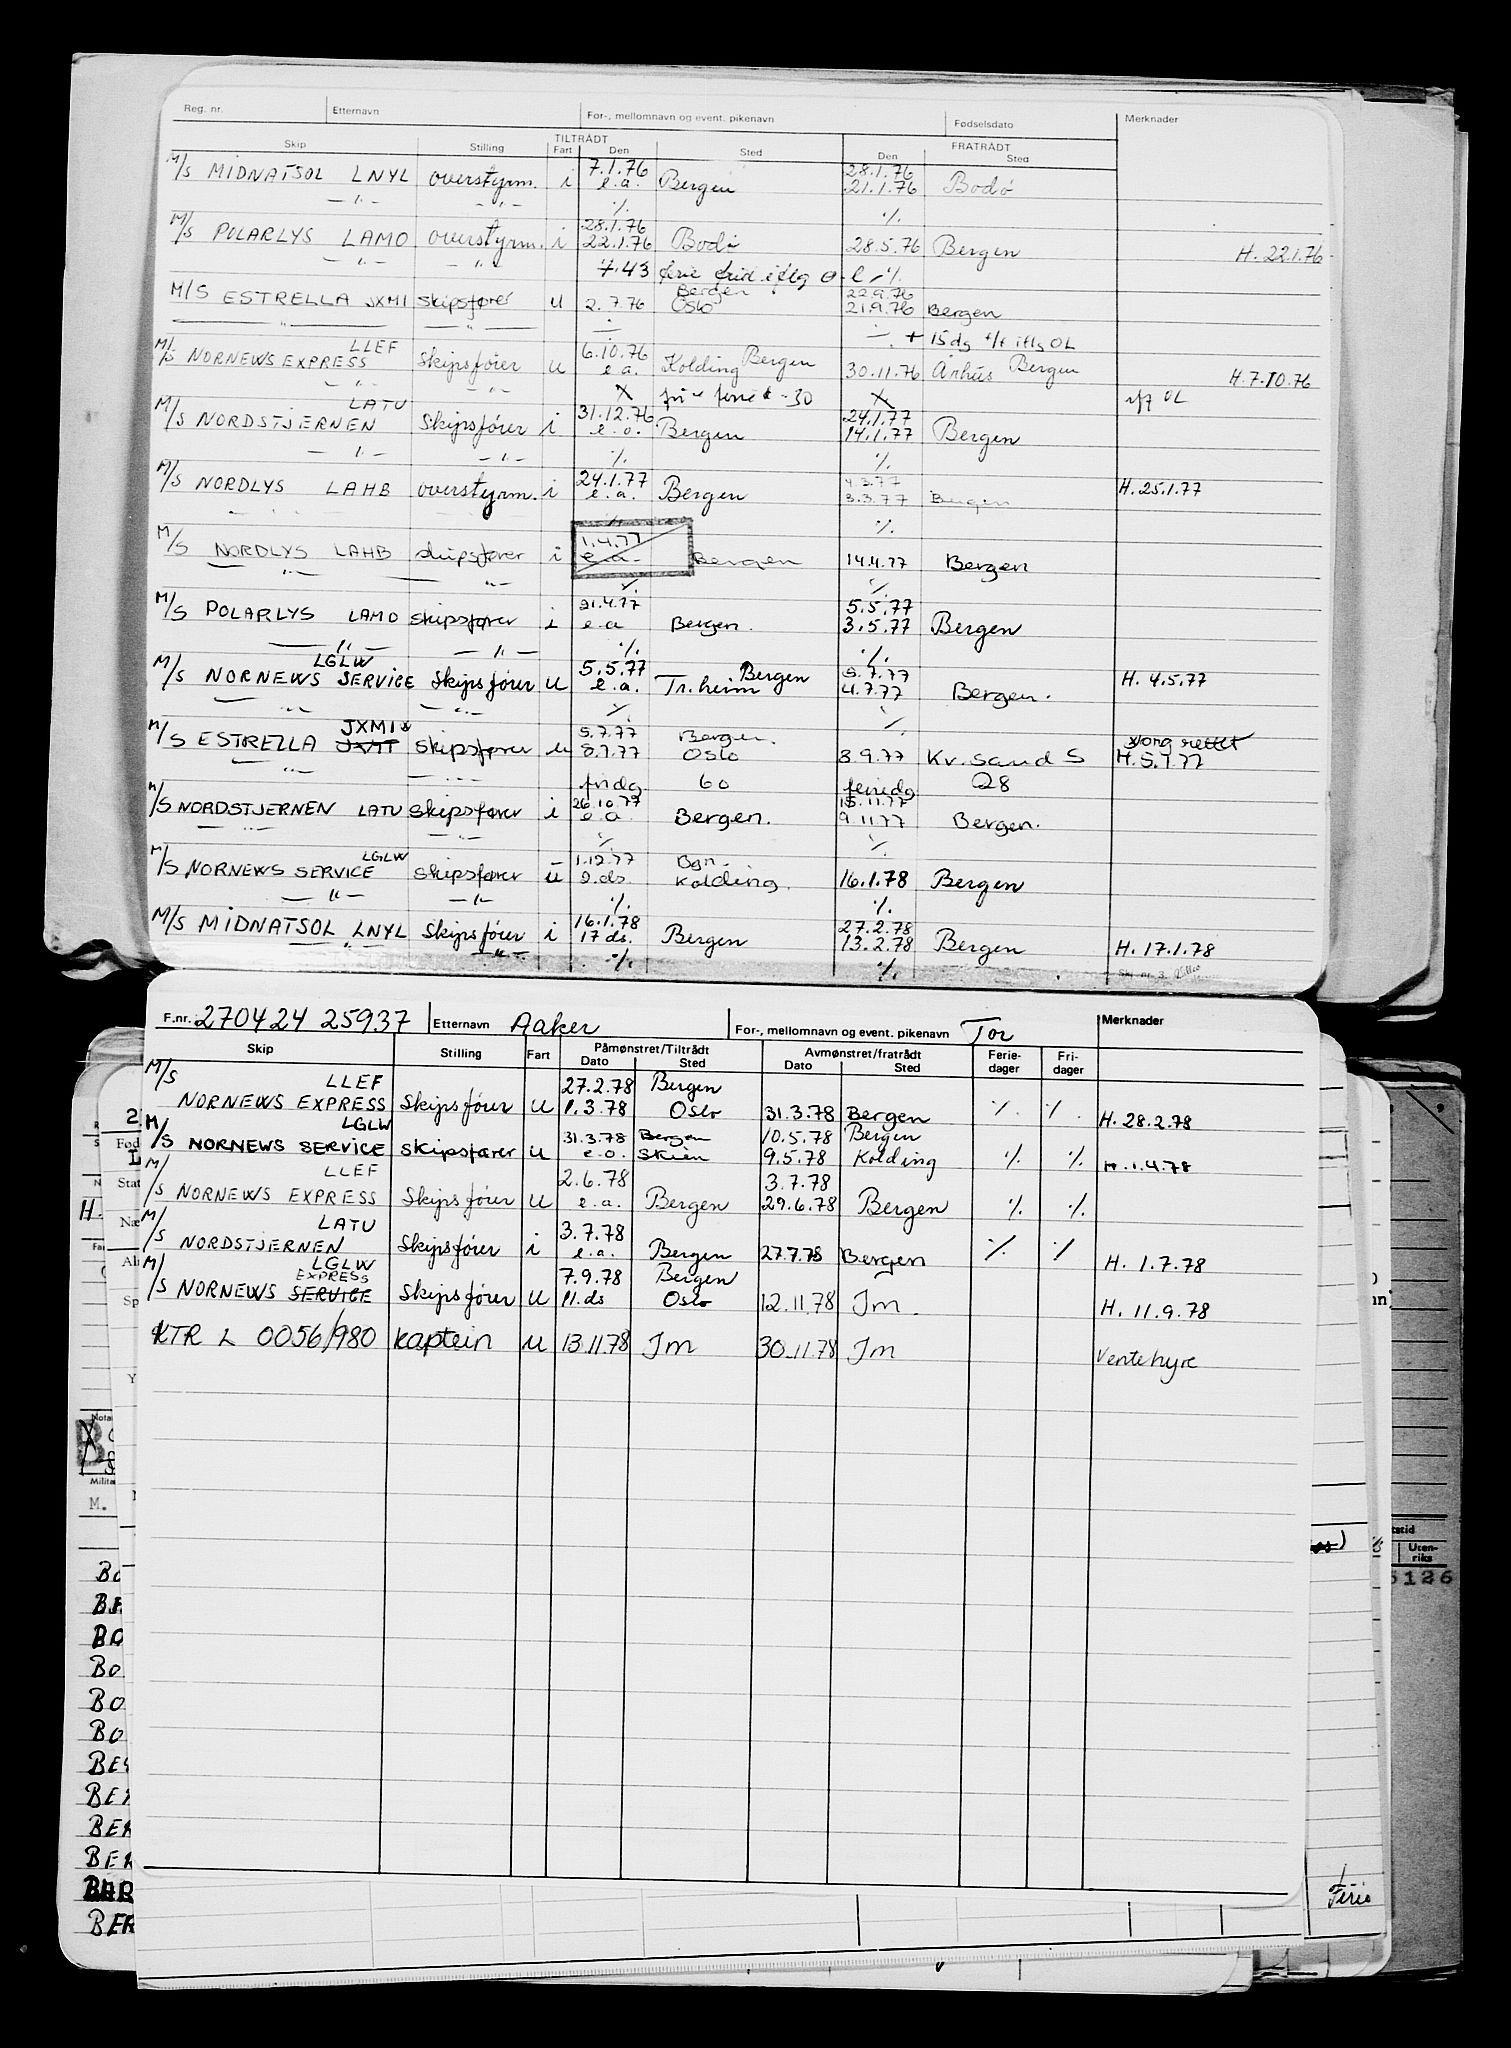 Reg. nr. Etternavn For-, mellomnavn og event. pikenavn Fødselsdato Merknader
TILTRÅDT FRATRÅDT
Skip Stilling Fart Den Sted Den Sted
7.1.76 28.1.76
M/S MIDNATSOL LNYL overstyrm. i e.a. Bergen 21.1.76 Bodø
—"— —"— % %
28.1.76
M/S POLARLYS LAMO overstyrm. i 22.1.76 Bodø 28.5.76 Bergen H. 22.1.76
—"— —"— 7.43
Bergen 22.9.76
M/S ESTRELLA JXMI skipsfører u 2.7.76 Oslo 21.9.76 Bergen
—"— —"— % + 15 dg
LLEF 6.10.76
M/S NORNEWS EXPRESS Skipsfører u e.a. Kolding Bergen 30.11.76 Århus Bergen H. 7.10.76
—"— —"— 30
LATU 31.12.76 24.1.77
M/S NORDSTJERNEN Skipsfører i e.o. Bergen 14.1.77 Bergen
—"— —"— % %
24.1.77 4.3.77
M/S NORDLYS LAHB overstyrm. i e.a. Bergen 3.3.77 Bergen H. 25.1.77
% %
1.4.77
M/S NORDLYS LAHB skipsfører i e.a. Bergen 14.4.77 Bergen
—"— —"— % %
21.4.77 5.5.77
M/S POLARLYS LAMO skipsfører i e.a Bergen. 3.5.77 Bergen
—"— —"— % %
LGLW 5.5.77 Bergen 5.7.77
M/S NORNEWS SERVICE Skipsfører u e.a. Tr.heim 4.7.77 Bergen. H. 4.5.77
—"— —"— % %
JXMI 5.7.77 Bergen.
M/S ESTRELLA skipsfører u 8.7.77 Oslo 8.9.77 Kv. sand S H. 5.7.77
—"— —"— fridg 60 feriedg 28
26.10.77 15.11.77
M/S NORDSTJERNEN LATU skipsfører i e.a. Bergen. 9.11.77 Bergen.
—"— —"— % %
LGLW 1.12.77 Bgn.
M/S NORNEWS SERVICE skipsfører u 2.ds. Kolding. 16.1.78 Bergen
—"— —"— % %
16.1.78 27.2.78
M/S MIDNATSOL LNYL Skipsfører i 17 ds. Bergen 13.2.78 Bergen H. 17.1.78
—"— —"— % %
F.nr. 270424 25937 Etternavn Aaker For-, mellomnavn og event. pikenavn Tor Merknader
Skip Stilling Fart Påmønstret/Tiltrådt Avmønstret/fratrådt Ferie- Fri-
Dato Sted Dato Sted dager dager
M/S LLEF 27.2.78 Bergen
NORNEWS EXPRESS Skipsfører u 1.3.78 Oslo 31.3.78 Bergen % % H. 28.2.78
LGLW 31.3.78 Bergen 10.5.78 Bergen
M/S NORNEWS SERVICE Skipsfører u e.o. Skien 9.5.78 Kolding % % H. 1.4.78
LLEF 2.6.78 3.7.78
M/S NORNEWS EXPRESS Skipsfører u e.a. Bergen 29.6.78 Bergen % %
LATU 3.7.78
M/S NORDSTJERNEN Skipsfører i e.a. Bergen 27.7.78 Bergen % % H. 1.7.78
LGLW
EXPRESS 7.9.78 Bergen
M/S NORNEWS SERVICE Skipsfører u 11.ds Oslo 12.11.78 Im. H. 11.9.78
KTR L 0056/980 kaptein u 13.11.78 Im 30.11.78 Im Ventehyre
Uten-
riks
5126
Ferie